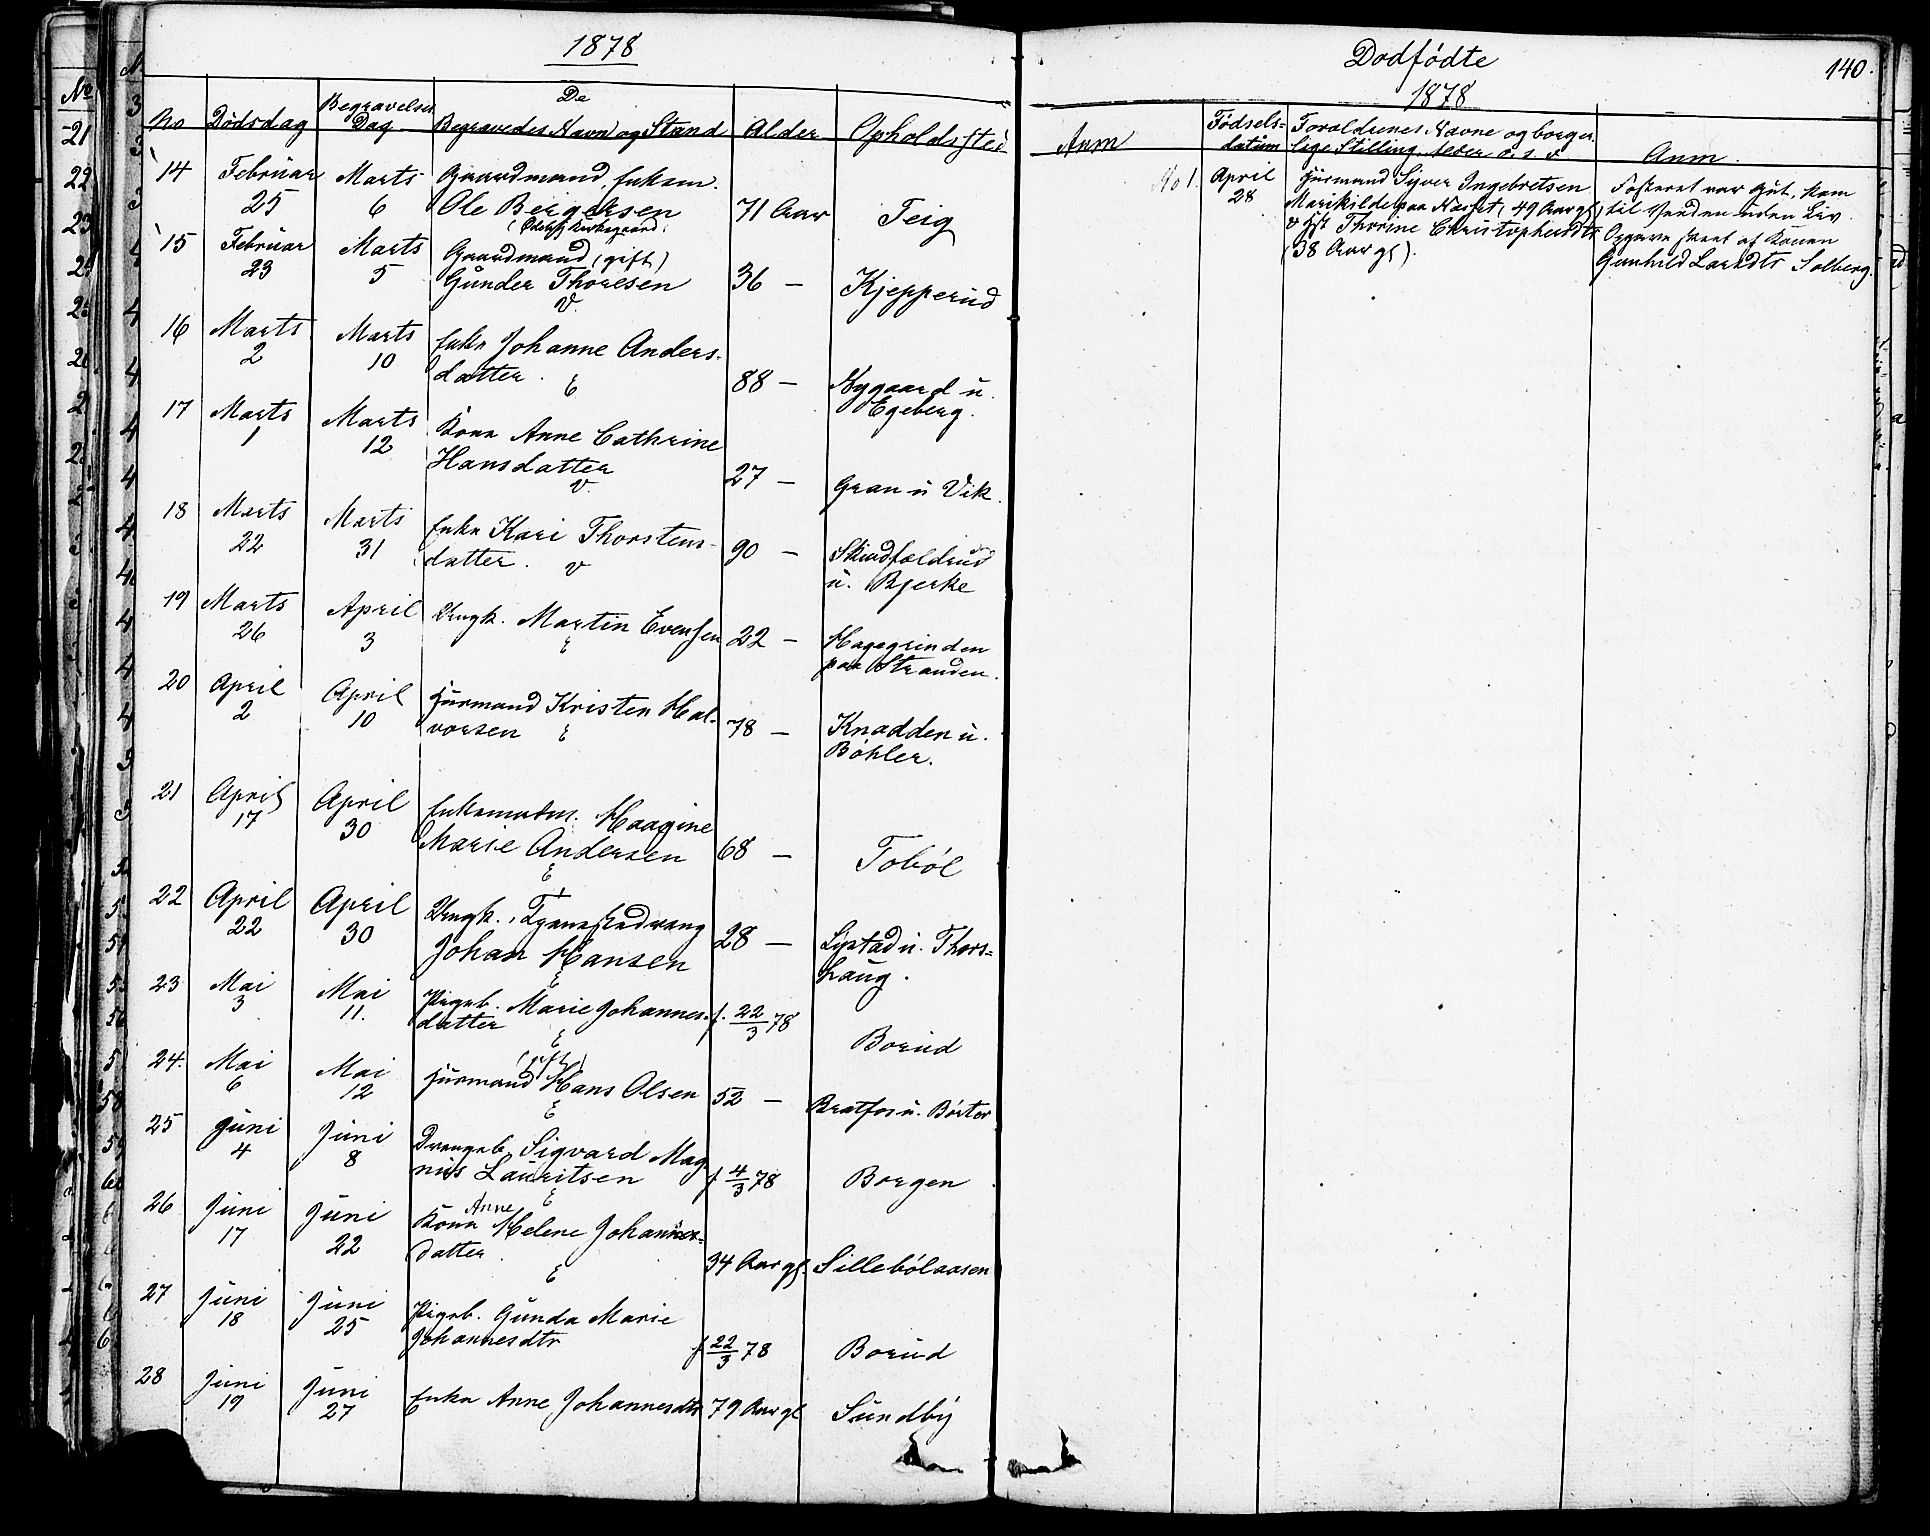 1878
No Dödsdag Begravelses Dag De Begravedes Navn og Stand Alder Opholdssted
14 Februar 25 Marts 6 Gaardmand, Enkem. 
Ole Bergersen 71 Aar Teig
15 Februar 23 Marts 5 Gaardmand (gift)
Gunder Thoresen 36 — Kjepperud
V.
16 Marts 2 Marts 10 Enke Johanne Anders-
datter. E 88 — Nygaard u.
Egeberg.
17 Marts 1 Marts 12 Kone Anne Cathrine
Hansdatter 27 — Gran u Vik.
V.
18 Marts 22 Marts 31 Enke Kari Thorstens-
datter. V 90 — Skindfældrud
u. Bjerke
19 Marts 26 April 3 Ungk. Martin Evensen 22 — Hagegrinden
E paa Stranden.
20 April 2 April 10 Husmand Kristen Hal-
vorsen E 78 — Knadden u.
Böhler.
21 April 17 April 30 Haagine
Marie Andersen 68 — Toböl
E
22 April 22 April 30 Ungk.
Johan Hansen 28 — Lystad u. Thors=
haug.
E
23 Mai 3 Mai 11. Pigeb. Marie Johannes-
datter f. 22/3 78 Borud
E
24. Mai 6 Mai 12 (gift)
Husmand Hans Olsen 52 — Bratfos u. Börter
E
25 Juni 4 Juni 8 Drengeb. Sigvard Mag-
nus Lauritsen f 4/3 78 Borgen
E
26 Juni 17 Juni 22 Anne
Kone Helene Johannes=
datter. 34 Aar gl. Sillebölaasen
E
27 Juni 18 Juni 25 Pigeb. Gunda Marie
Johannesdtr f 22/3 78 Borud
28 Juni 19 Juni 27 Enke Anne Johannesdtr 79 Aar gl Sundby
Dodfødte
140.
1878
Anm Fødsels=datum Forældrenes Navne og borger-
lige Stilling, Alder o. s. v. Anm.
No 1. April 28 Husmand Syver Ingebretsen
Marikilde paa Næset, (49 Aar gl)
& Hst Thorine Christophersdtr
(38 Aar gl).
Fosteret var Gut, kom
til Verden uden Liv.
Opgave skeet af Konen
Gunhild Larsdtr Solberg.